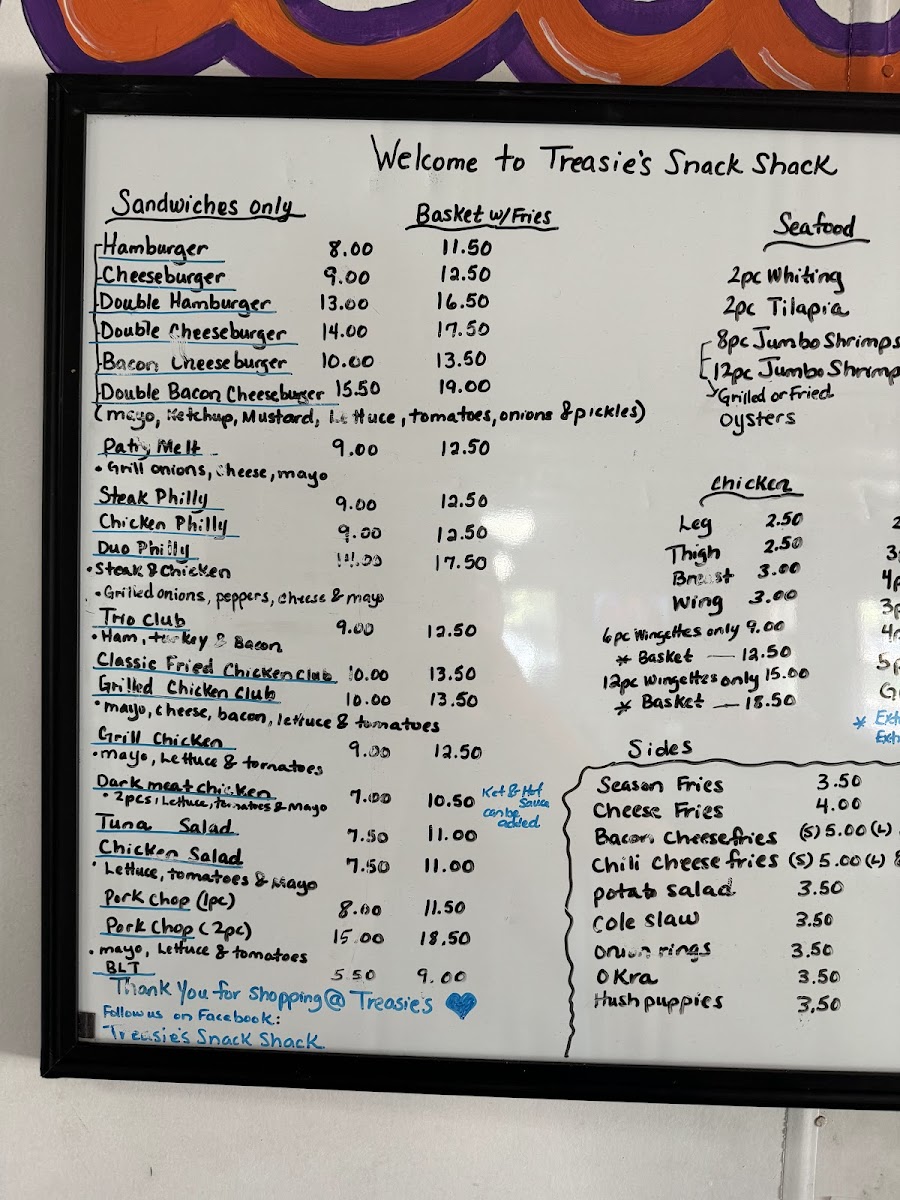 Welcome to Treasie's Snack Shack
Sandwiches only
Basket w/Fries
Hamburger 8.00 11.50
Cheeseburger 9.00 12.50
Double Hamburger 13.00 16.50
Double Cheeseburger 14.00 17.50
Bacon Cheeseburger 10.00 13.50
Double Bacon Cheeseburger 15.50 19.00
(mayo, Ketchup, Mustard, Lettuce, tomatoes, onions & pickles)
Patty Melt 9.00 12.50
• Grill onions, cheese, mayo
Steak Philly 9.00 12.50
Chicken Philly 9.00 12.50
Duo Philly 14.00 17.50
• Steak & Chicken
• Grilled onions, peppers, cheese & mayo
Trio Club 9.00 12.50
• Ham, turkey & Bacon
Classic Fried Chicken Club 10.00 13.50
Grilled Chicken Club 10.00 13.50
• mayo, cheese, bacon, lettuce & tomatoes
Grill Chicken 9.00 12.50
• mayo, Lettuce & tomatoes
Dark meat chicken 7.00 10.50
• 2pcs, Lettuce, tomatoes & Mayo
Ket & Hot
Sauce
can be
added
Tuna Salad 7.50 11.00
Chicken Salad 7.50 11.00
• Lettuce, tomatoes & Mayo
Pork Chop (1pc) 8.00 11.50
Pork Chop (2pc) 15.00 18.50
• mayo, Lettuce & tomatoes
BLT 5.50 9.00
Thank You for Shopping @ Treasie's
Follow us on Facebook:
Treasie's Snack Shack
Seafood
2pc Whiting
2pc Tilapia
8pc Jumbo Shrimps
12pc Jumbo Shrimp
Grilled or Fried
Oysters
Chicken
Leg 2.50
Thigh 2.50
Breast 3.00
Wing 3.00
6pc Wingettes only 9.00
* Basket — 12.50
12pc Wingettes only 15.00
* Basket — 18.50
Sides
Season Fries 3.50
Cheese Fries 4.00
Bacon Cheesefries (S) 5.00 (L)
Chili Cheese fries (S) 5.00 (L)
potato salad 3.50
Cole slaw 3.50
Onion rings 3.50
Okra 3.50
Hushpuppies 3.50